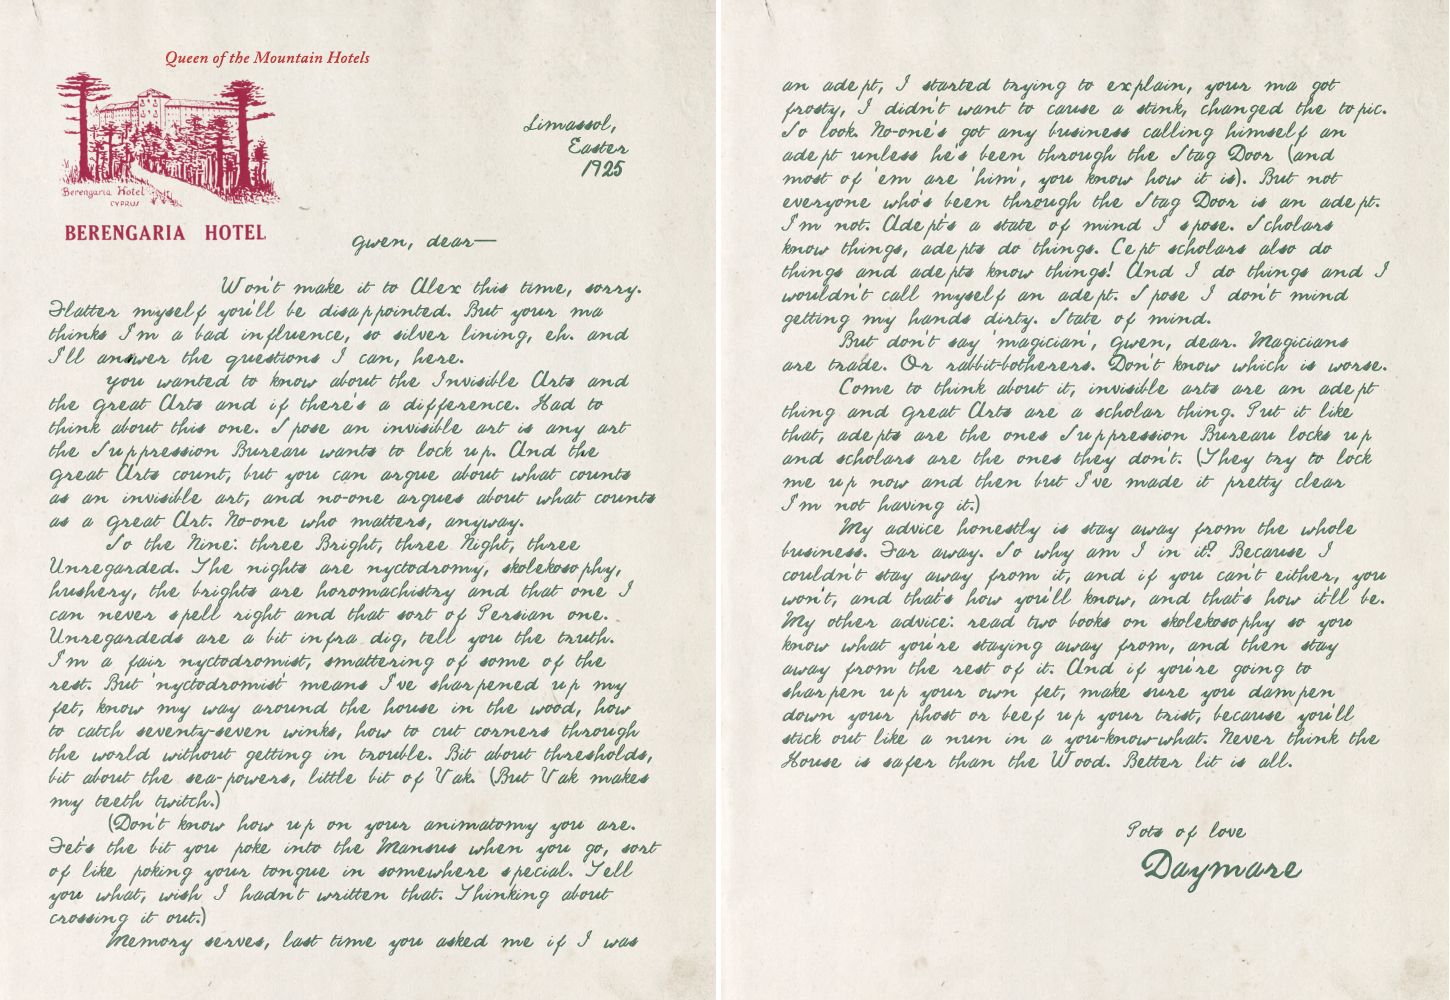 Queen of the Mountain Hotels
Berengaria Hotel
CYPRUS
BERENGARIA HOTEL
Limassol,
Easter
1925
Gwen, dear—
Won't make it to Alex this time, sorry.
Flatter myself you'll be disappointed. But your ma
thinks I'm a bad influence, so silver lining, eh. and
I'll answer the questions I can, here.
You wanted to know about the Invisible Arts and
the Great Arts and if there's a difference. Had to
think about this one. S'pose an invisible art is any art
the Suppression Bureau wants to lock up. And the
Great Arts count, but you can argue about what counts
as an invisible art, and no-one argues about what counts
as a Great Art. No-one who matters, anyway.
So the Nine: three Bright, three Night, three
Unregarded. The nights are nyctodromy, skolekosophy,
hushery, the brights are horomachistry and that one I
can never spell right and that sort of Persian one.
Unregardeds are a bit infra dig, tell you the truth.
I'm a fair nyctodromist, smattering of some of the
rest. But 'nyctodromist' means I've sharpened up my
fet, know my way around the house in the wood, how
to catch seventy-seven winks, how to cut corners through
the world without getting in trouble. Bit about thresholds,
bit about the sea-powers, little bit of Vak. (But Vak makes
my teeth twitch.)
(Don't know how up on your animatomy you are.
Fet's the bit you poke into the Mansus when you go, sort
of like poking your tongue in somewhere special. Tell
you what, wish I hadn't written that. Thinking about
crossing it out.)
Memory serves, last time you asked me if I was
an adept, I started trying to explain, your ma got
frosty, I didn't want to cause a stink, changed the topic.
So look. No-one's got any business calling himself an
adept unless he's been through the Stag Door (and
most of 'em are 'him', you know how it is). But not
everyone who's been through the Stag Door is an adept.
I'm not. Adept's a state of mind I spose. Scholars
know things, adepts do things. Cept scholars also do
things and adepts know things! And I do things and I
wouldn't call myself an adept. Spose I don't mind
getting my hands dirty. State of mind.
But don't say 'magician', Gwen, dear. Magicians
are trade. Or rabbit-botherers. Don't know which is worse.
Come to think about it, invisible arts are an adept
thing and Great Arts are a scholar thing. Put it like
that, adepts are the ones Suppression Bureau locks up
and scholars are the ones they don't. (They try to lock
me up now and then but I've made it pretty clear
I'm not having it.)
My advice honestly is stay away from the whole
business. Far away. So why am I in it? Because I
couldn't stay away from it, and if you can't either, you
won't, and that's how you'll know, and that's how it'll be.
My other advice: read two books on skolekosophy so you
know what you're staying away from, and then stay
away from the rest of it. And if you're going to
sharpen up your own fet, make sure you dampen
down your phost or beef up your trist, because you'll
stick out like a nun in a you-know-what. Never think the
House is safer than the Wood. Better lit is all.
Pots of love
Daymare